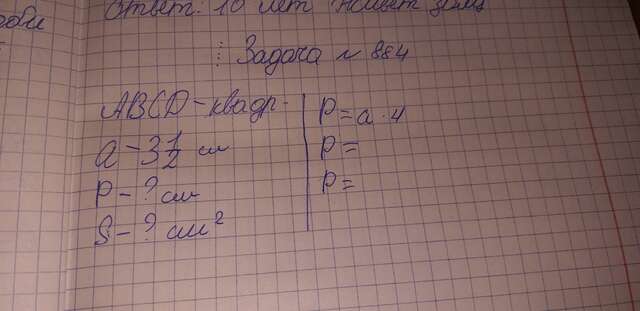 Ответ: 10 лет живёт
Задача № 884
ABCD - квадр.
a - 3 1/2 см
P - ? см
S - ? см²
P = a · 4
P =
P =